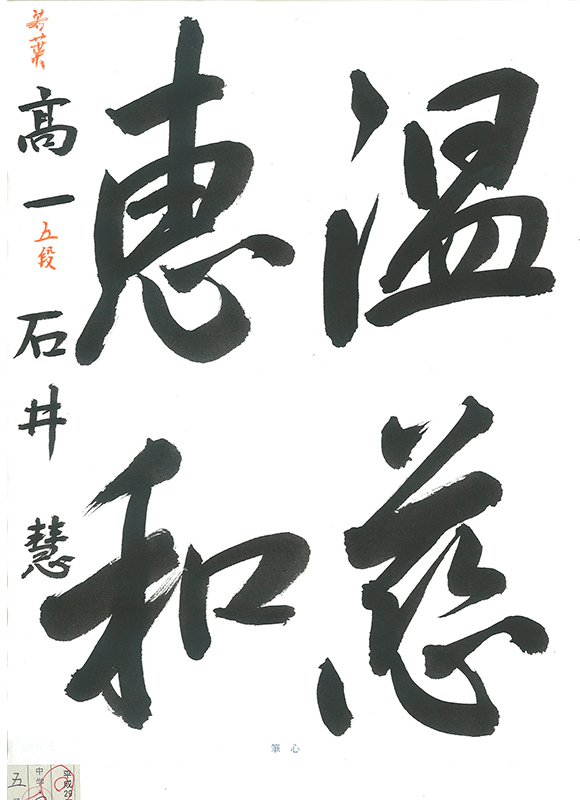 温慈
恵和
若葉
高一 五段 石井 慧
心筆
平成29
中学・
五